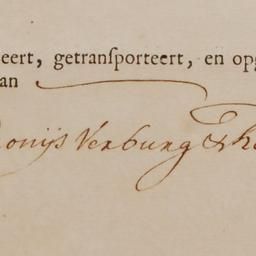 eert, getranſporteert, en opg
an
onijs Verburg & h